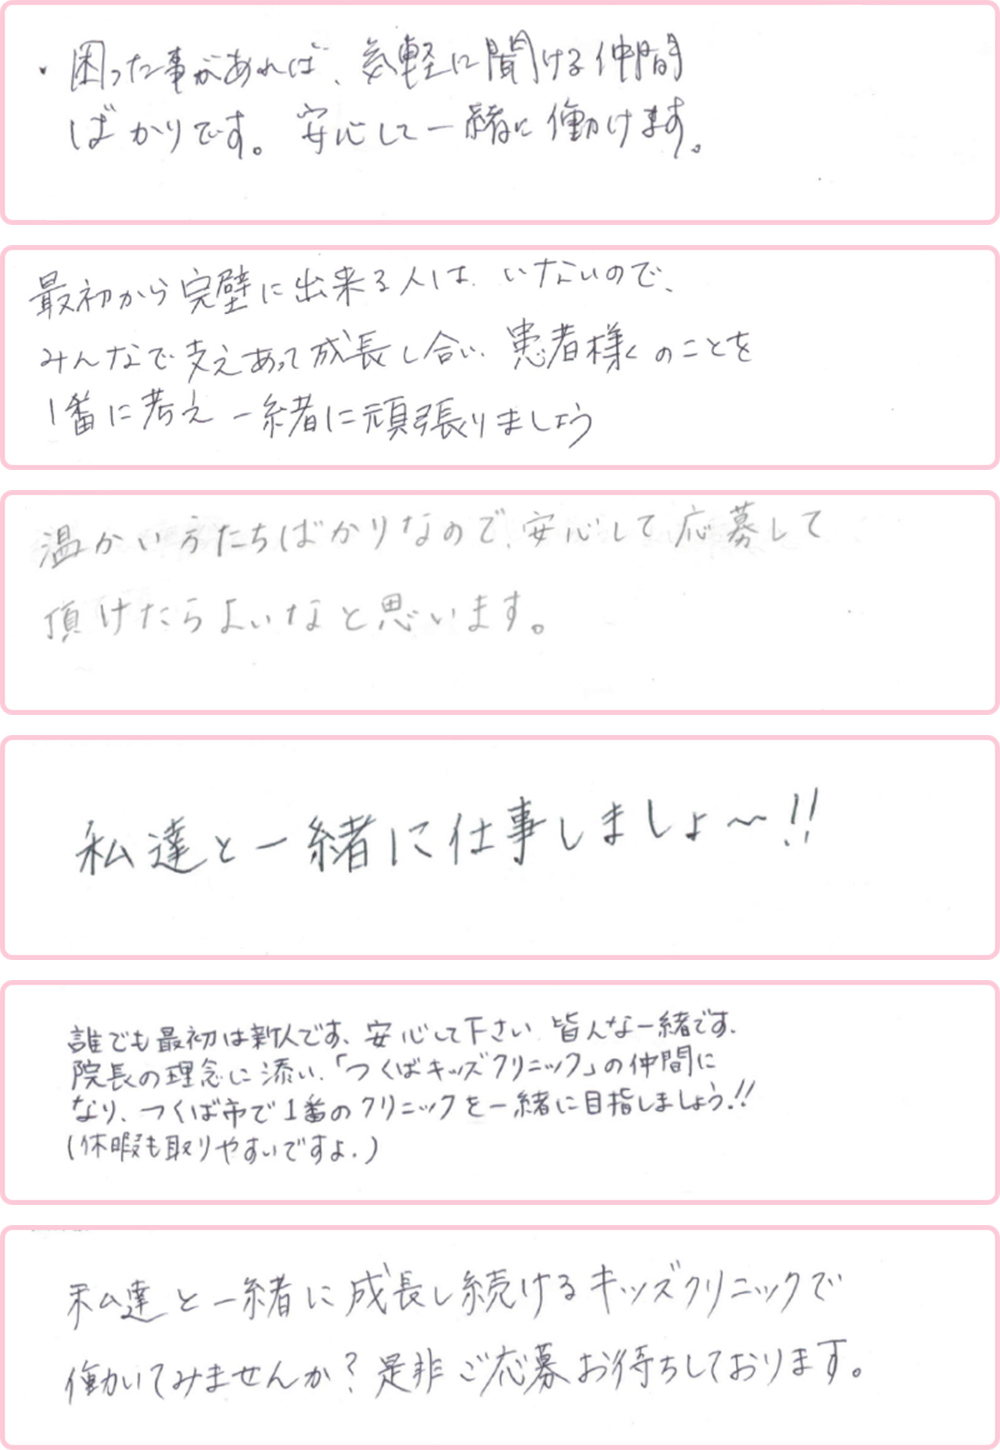 ・困った事があれば、気軽に聞ける仲間
ばかりです。安心して一緒に働けます。
最初から完璧に出来る人は、いないので、
みんなで支えあって成長し合い、患者様のことを
1番に考え一緒に頑張りましょう
温かい方たちばかりなので、安心して応募して
頂けたらよいなと思います。
私達と一緒に仕事しましょ〜!!
誰でも最初は新人です、安心して下さい 皆んな一緒です、
院長の理念に添い、「つくばキッズクリニック」の仲間に
なり、つくば市で1番のクリニックを一緒に目指しましょう!!
(休暇も取りやすいですよ。)
私達と一緒に成長し続けるキッズクリニックで
働いてみませんか?是非ご応募お待ちしております。